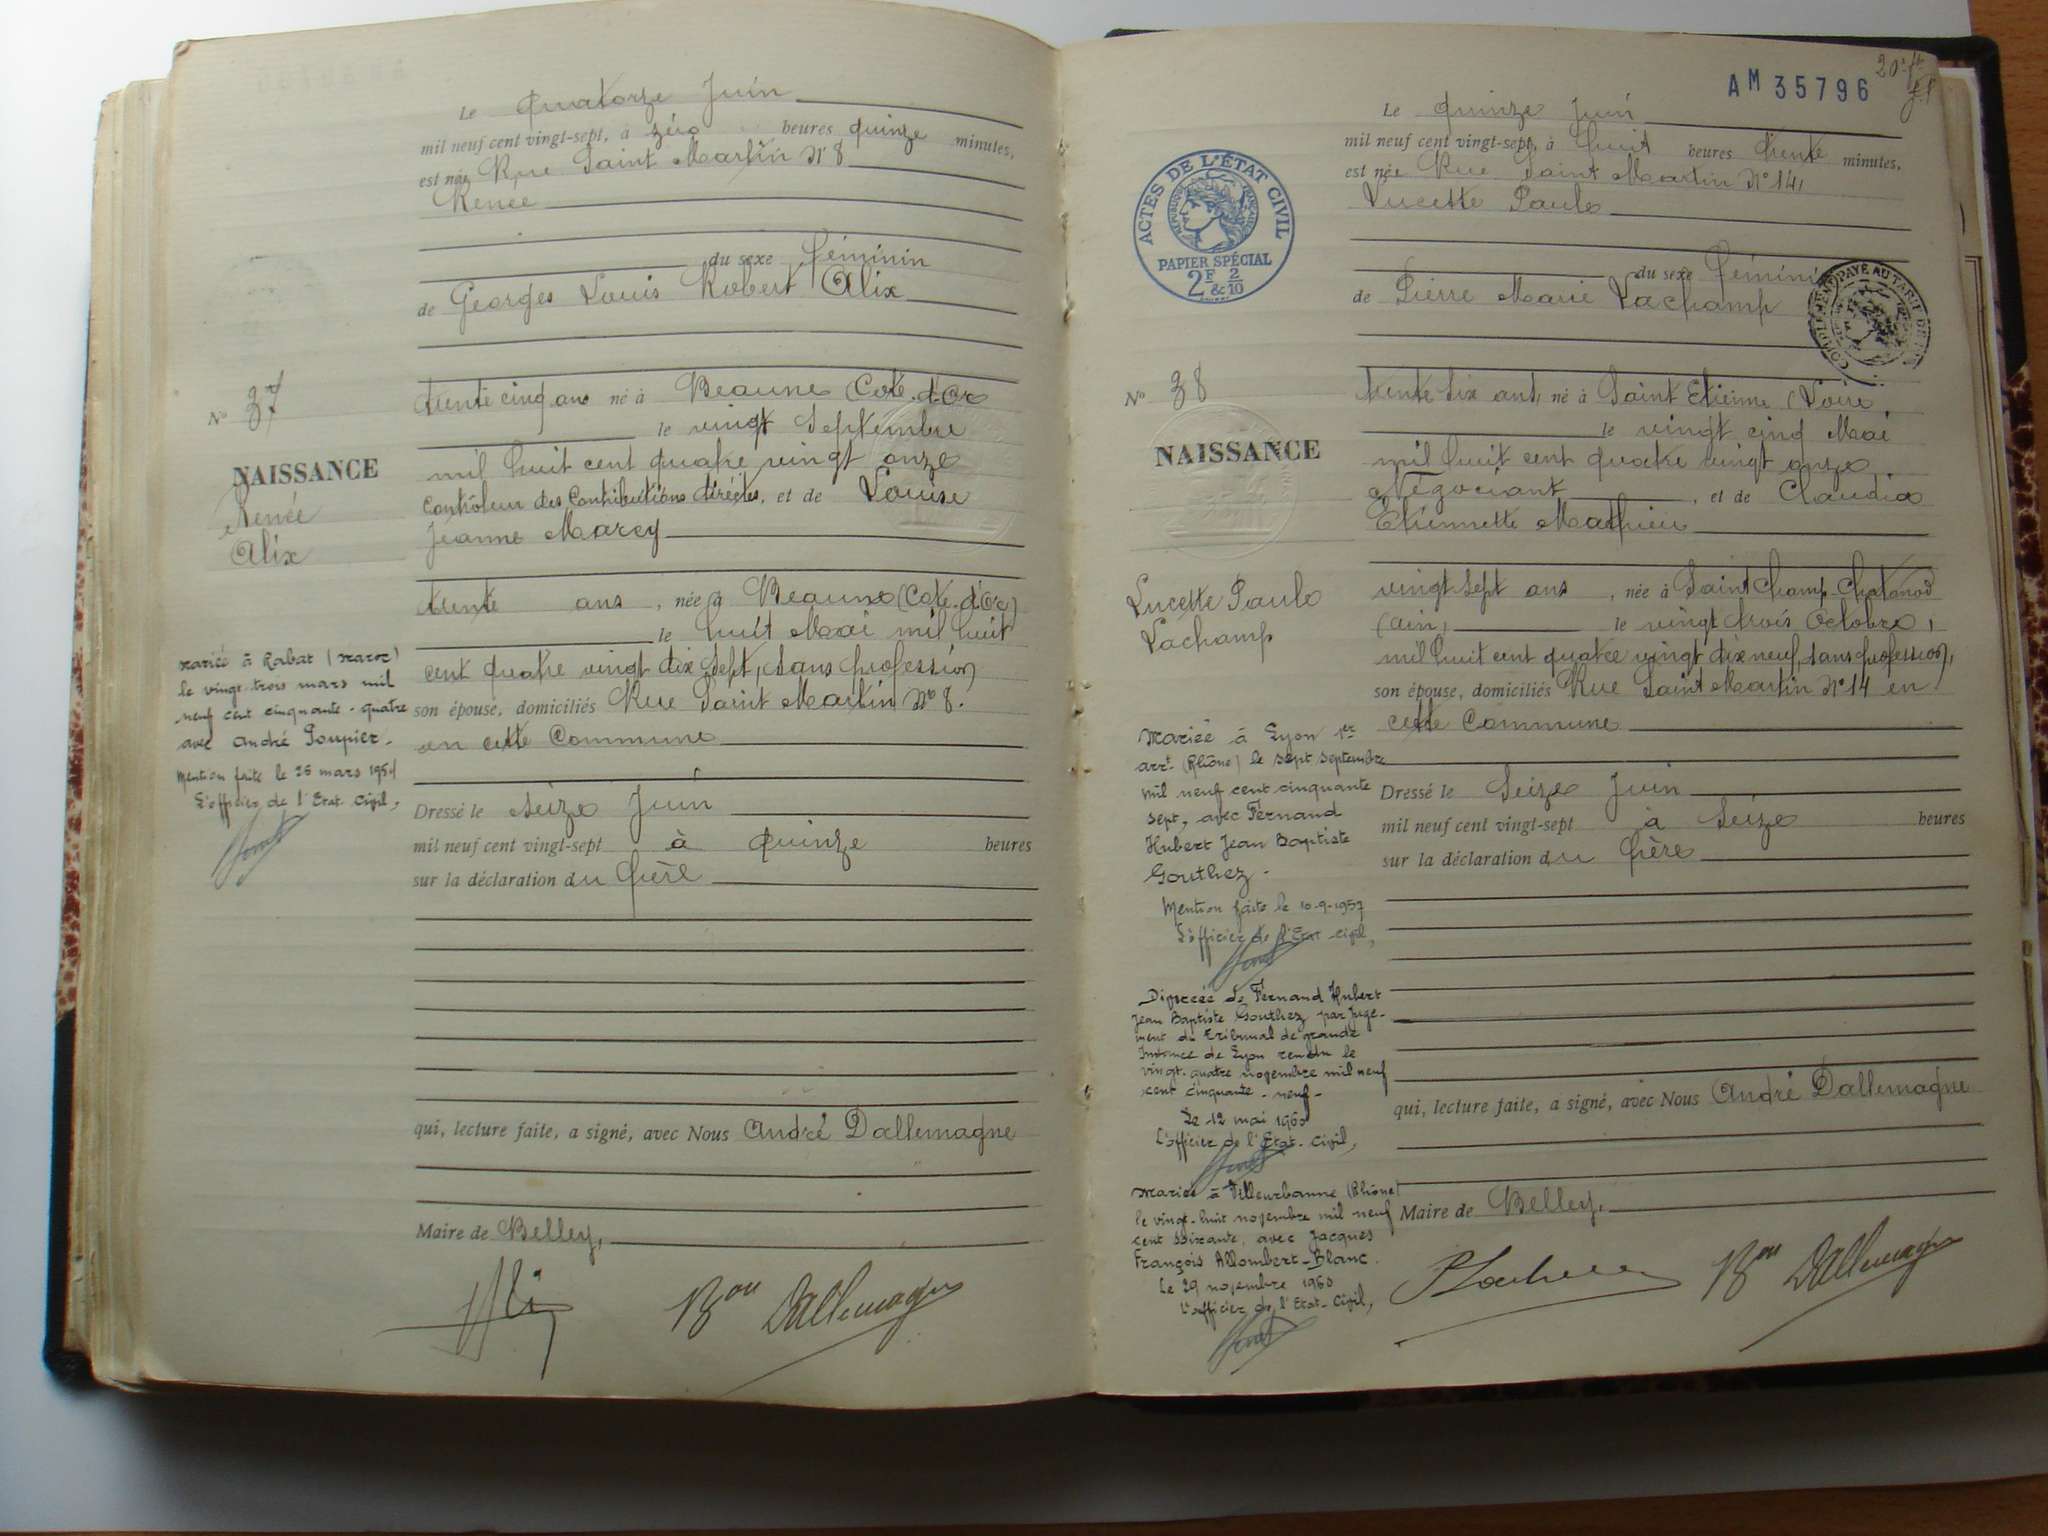 Le quatorze Juin
mil neuf cent vingt-sept, à zéro heures quinze minutes,
est née Rue Saint Martin N° 8
Renée
du sexe féminin
de Georges Louis Robert Alix
trente cinq ans né à Beaune (Côte d'Or
le vingt Septembre
mil huit cent quatre vingt onze
Contrôleur des Contributions directes, et de Louise
Jeanne Marey
trente ans, née à Beaune (Côte d'Or)
le huit Mai mil huit
cent quatre vingt dix sept, sans profession
son épouse, domiciliés Rue Saint Martin N° 8.
en cette Commune
Dressé le Seize Juin
mil neuf cent vingt-sept à quinze heures
sur la déclaration du père
qui, lecture faite, a signé, avec Nous André Dallemagne
Maire de Belley,
Alix Bon Dallemagne
N° 37
NAISSANCE
Renée
Alix
mariée à Rabat (Maroc)
le vingt-trois mars mil
neuf cent cinquante-quatre
avec André Poupier.
Mention faite le 26 mars 1954
L'officier de l'Etat-Civil,
AM 35796
ACTES DE L'ÉTAT CIVIL
RÉPUBLIQUE FRANÇAISE
PAPIER SPÉCIAL
2F & 2/10
Le quinze Juin
mil neuf cent vingt-sept, à huit heures trente minutes,
est née Rue Saint Martin N° 14,
Lucette Paule
du sexe féminin
COMPLÉMENT PAYÉ AU TARIF DE
de Pierre Marie Vachamp
trente six ans, né à Saint Etienne (Loire
le vingt cinq Mai
mil huit cent quatre vingt onze
Négociant, et de Claudia
Etiennette Mathieu
vingt sept ans, née à Saint Champ Chatonod
(Ain) le vingt trois Octobre,
mil huit cent quatre vingt dix neuf, sans profession,
son épouse, domiciliés Rue Saint Martin N° 14 en
cette Commune
Dressé le Seize Juin
mil neuf cent vingt-sept à Seize heures
sur la déclaration du père
qui, lecture faite, a signé, avec Nous André Dallemagne
Maire de Belley,
Bon Dallemagne
N° 38
NAISSANCE
Lucette Paule
Vachamp
Mariée à Lyon 1er
arrt (Rhône) le sept septembre
mil neuf cent cinquante
sept, avec Fernand
Hubert Jean Baptiste
Gouthez.
Mention faite le 10-9-1957
L'officier de l'Etat civil,
Divorcée de Fernand Hubert
Jean Baptiste Gouthez par Juge-
ment du Tribunal de grande
Instance de Lyon rendu le
vingt-quatre novembre mil neuf
cent cinquante-neuf-
Le 12 mai 1960
L'officier de l'Etat-Civil,
Mariée à Villeurbanne (Rhône)
le vingt-huit novembre mil neuf
cent soixante, avec Jacques
François Allombert-Blanc.
Le 29 novembre 1960
L'officier de l'Etat-Civil,